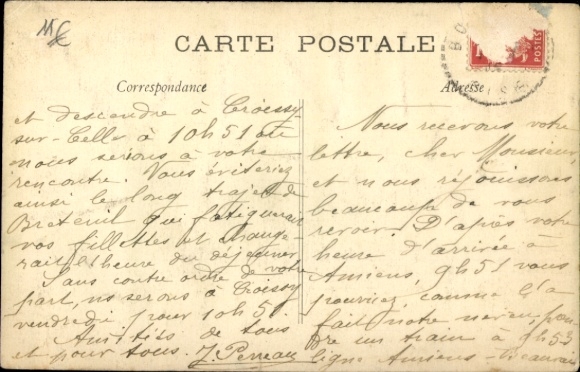 CARTE POSTALE
Correspondance
Adresse
POSTES
Nous recevons votre
lettre, cher Monsieur,
et nous réjouissons
beaucoup de vous
revoir. D'après votre
heure d'arrivée à
Amiens, 9h51 vous
pourriez, comme l'a
fait notre neveu, pren
dre un train à 9h53
ligne Amiens-Beauvais
et descendre à Croissy-
sur-Celle à 10h51 où
nous serions à votre
rencontre. Vous éviteriez
ainsi le long trajet de
Breteuil qui fatiguerait
vos fillettes et change-
rait l'heure du déjeuner
Sans contre ordre de votre
part, ns serons à Croissy
vendredi pour 10h51.
Amitiés de tous
et pour tous. J. Perreau